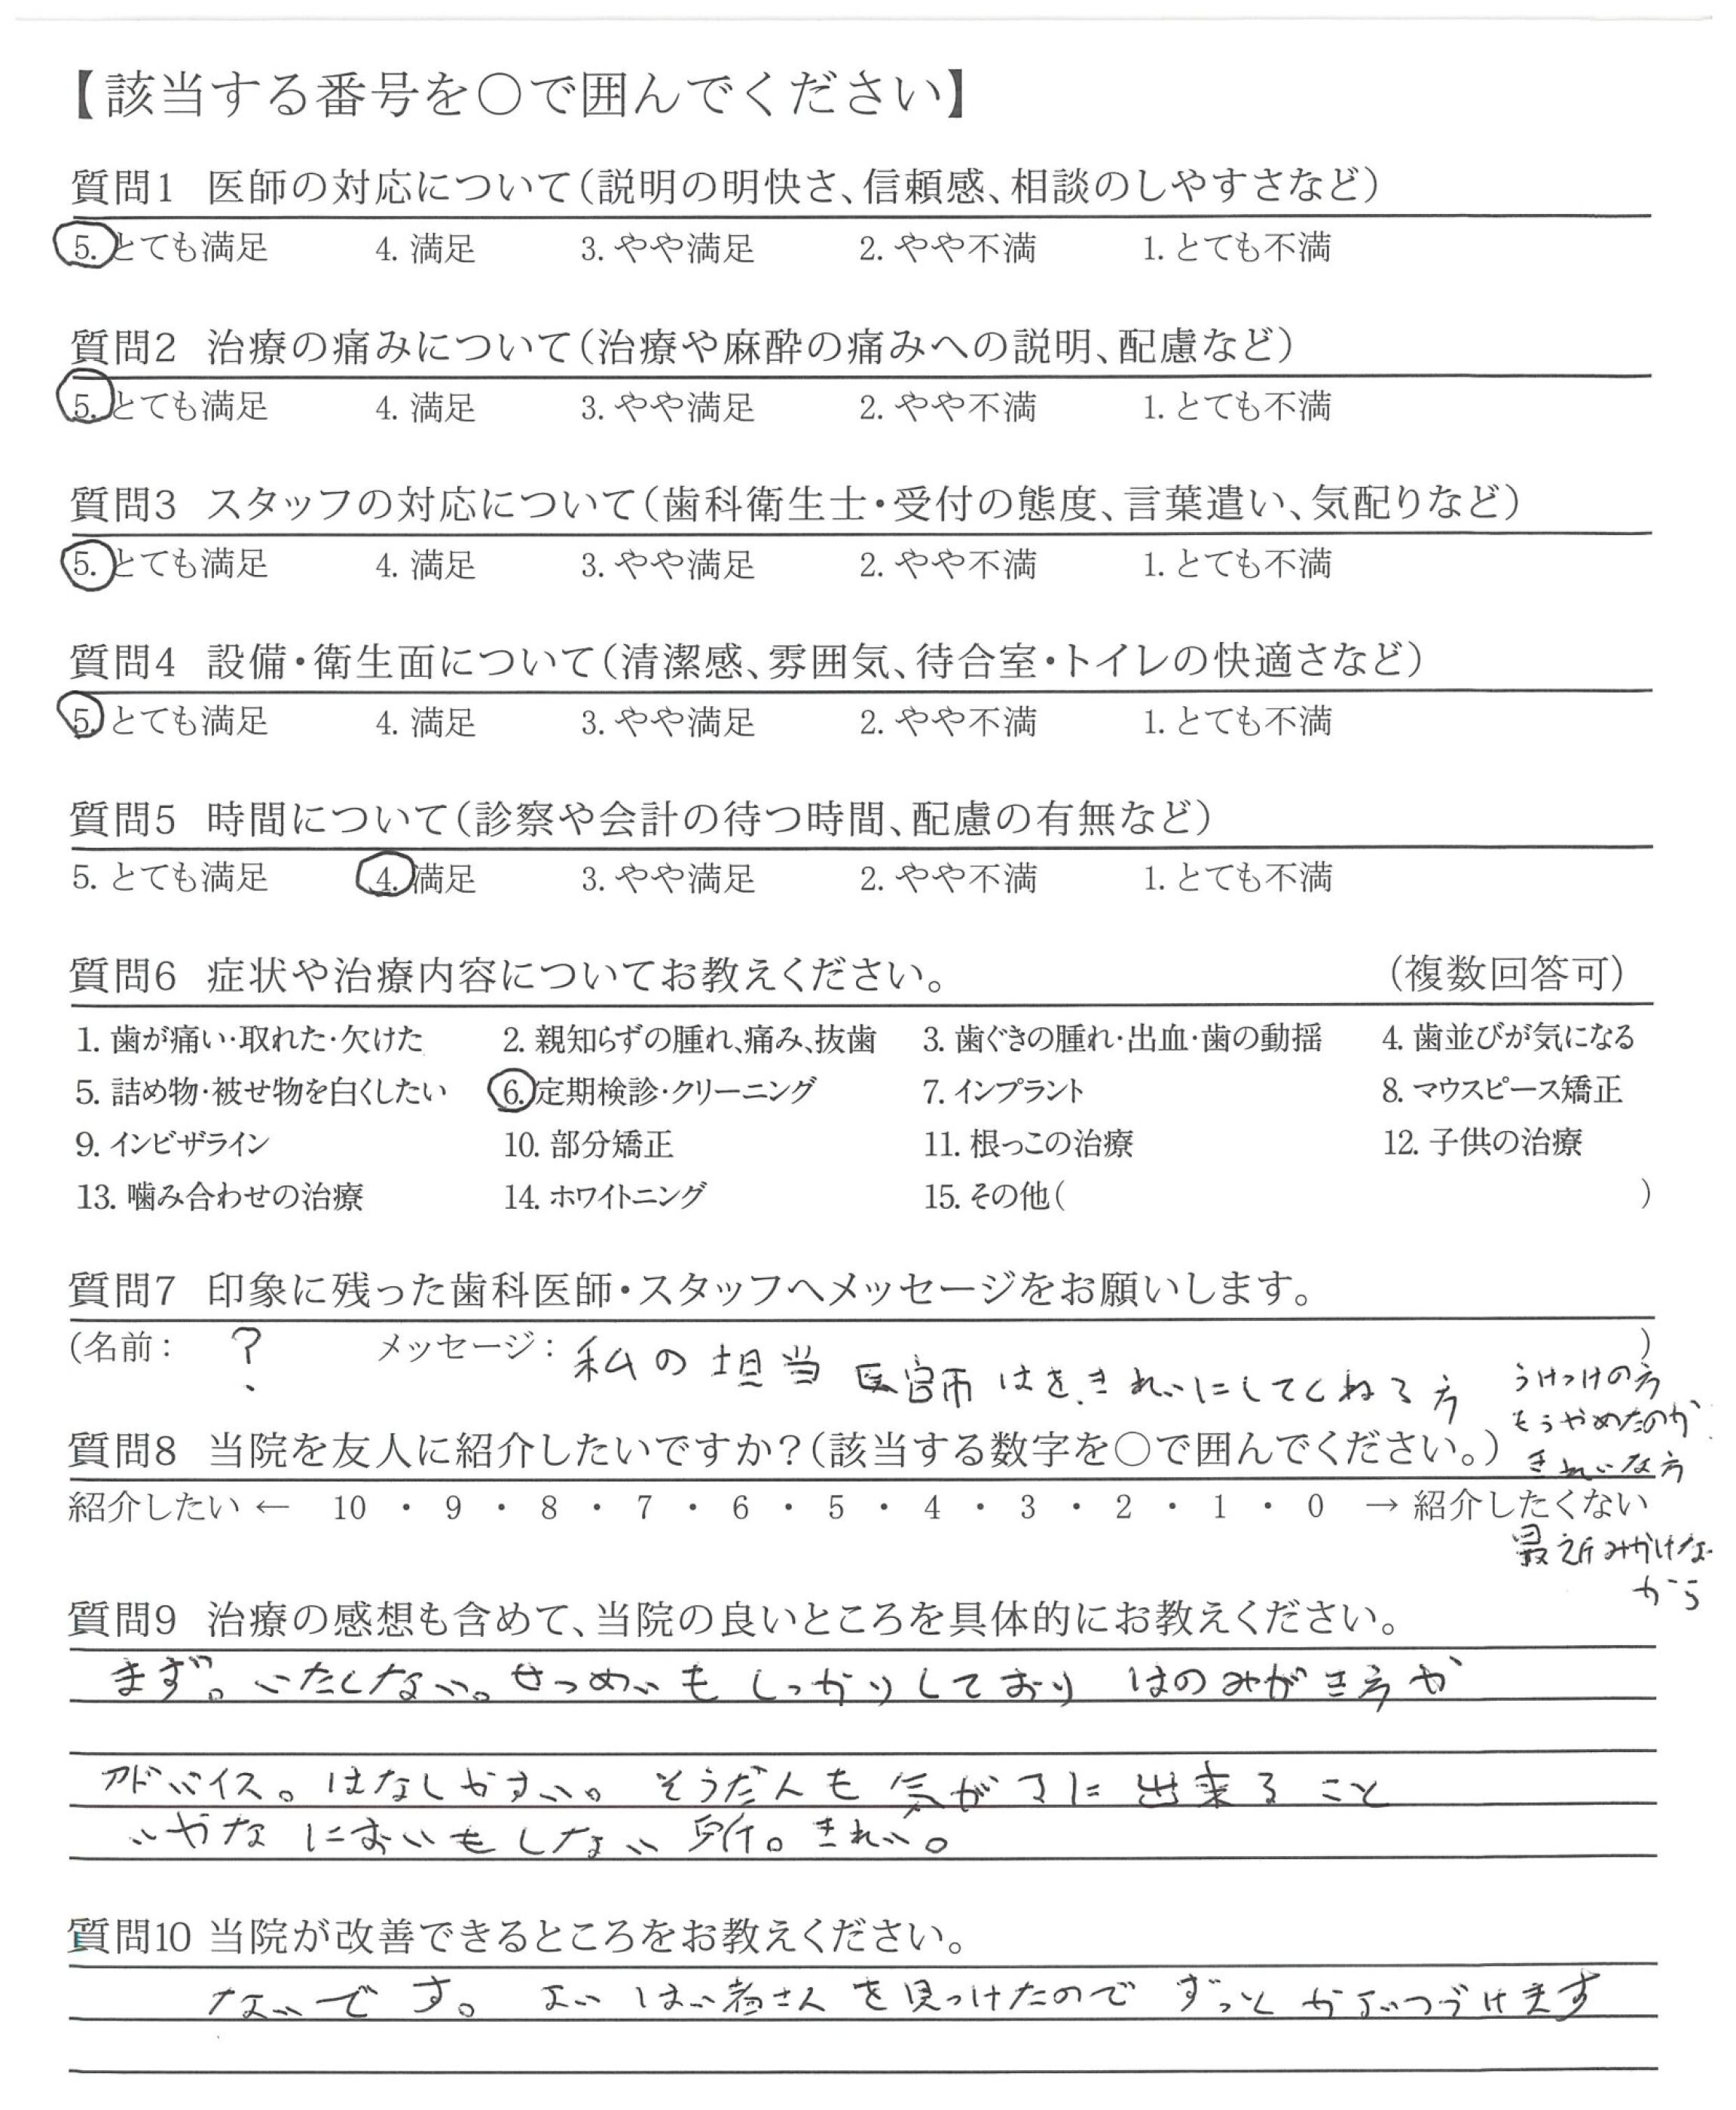 【該当する番号を○で囲んでください】
質問1 医師の対応について(説明の明快さ、信頼感、相談のしやすさなど)
5. とても満足 4. 満足 3. やや満足 2. やや不満 1. とても不満
質問2 治療の痛みについて(治療や麻酔の痛みへの説明、配慮など)
5. とても満足 4. 満足 3. やや満足 2. やや不満 1. とても不満
質問3 スタッフの対応について(歯科衛生士・受付の態度、言葉遣い、気配りなど)
5. とても満足 4. 満足 3. やや満足 2. やや不満 1. とても不満
質問4 設備・衛生面について(清潔感、雰囲気、待合室・トイレの快適さなど)
5. とても満足 4. 満足 3. やや満足 2. やや不満 1. とても不満
質問5 時間について(診察や会計の待つ時間、配慮の有無など)
5. とても満足 4. 満足 3. やや満足 2. やや不満 1. とても不満
質問6 症状や治療内容についてお教えください。 (複数回答可)
1. 歯が痛い・取れた・欠けた 2. 親知らずの腫れ、痛み、抜歯 3. 歯ぐきの腫れ・出血・歯の動揺 4. 歯並びが気になる
5. 詰め物・被せ物を白くしたい 6. 定期検診・クリーニング 7. インプラント 8. マウスピース矯正
9. インビザライン 10. 部分矯正 11. 根っこの治療 12. 子供の治療
13. 噛み合わせの治療 14. ホワイトニング 15. その他( )
質問7 印象に残った歯科医師・スタッフへメッセージをお願いします。
(名前: ? メッセージ: 私の担当 医師 はをきれいにしてくれる方 )
うけつけの方
もうやめたのか
きれいな方
質問8 当院を友人に紹介したいですか?(該当する数字を○で囲んでください。)
紹介したい ← 10 ・ 9 ・ 8 ・ 7 ・ 6 ・ 5 ・ 4 ・ 3 ・ 2 ・ 1 ・ 0 → 紹介したくない
最近みかけな
から
質問9 治療の感想も含めて、当院の良いところを具体的にお教えください。
まず。いたくない。せつめいもしっかりしており はのみがき方や
アドバイス。はなしやすい。そうだんも気がるに出来ること
いやなにおいもしない所。きれい。
質問10 当院が改善できるところをお教えください。
ないです。よいはい者さんを見つけたのでずっとかよいつづけます